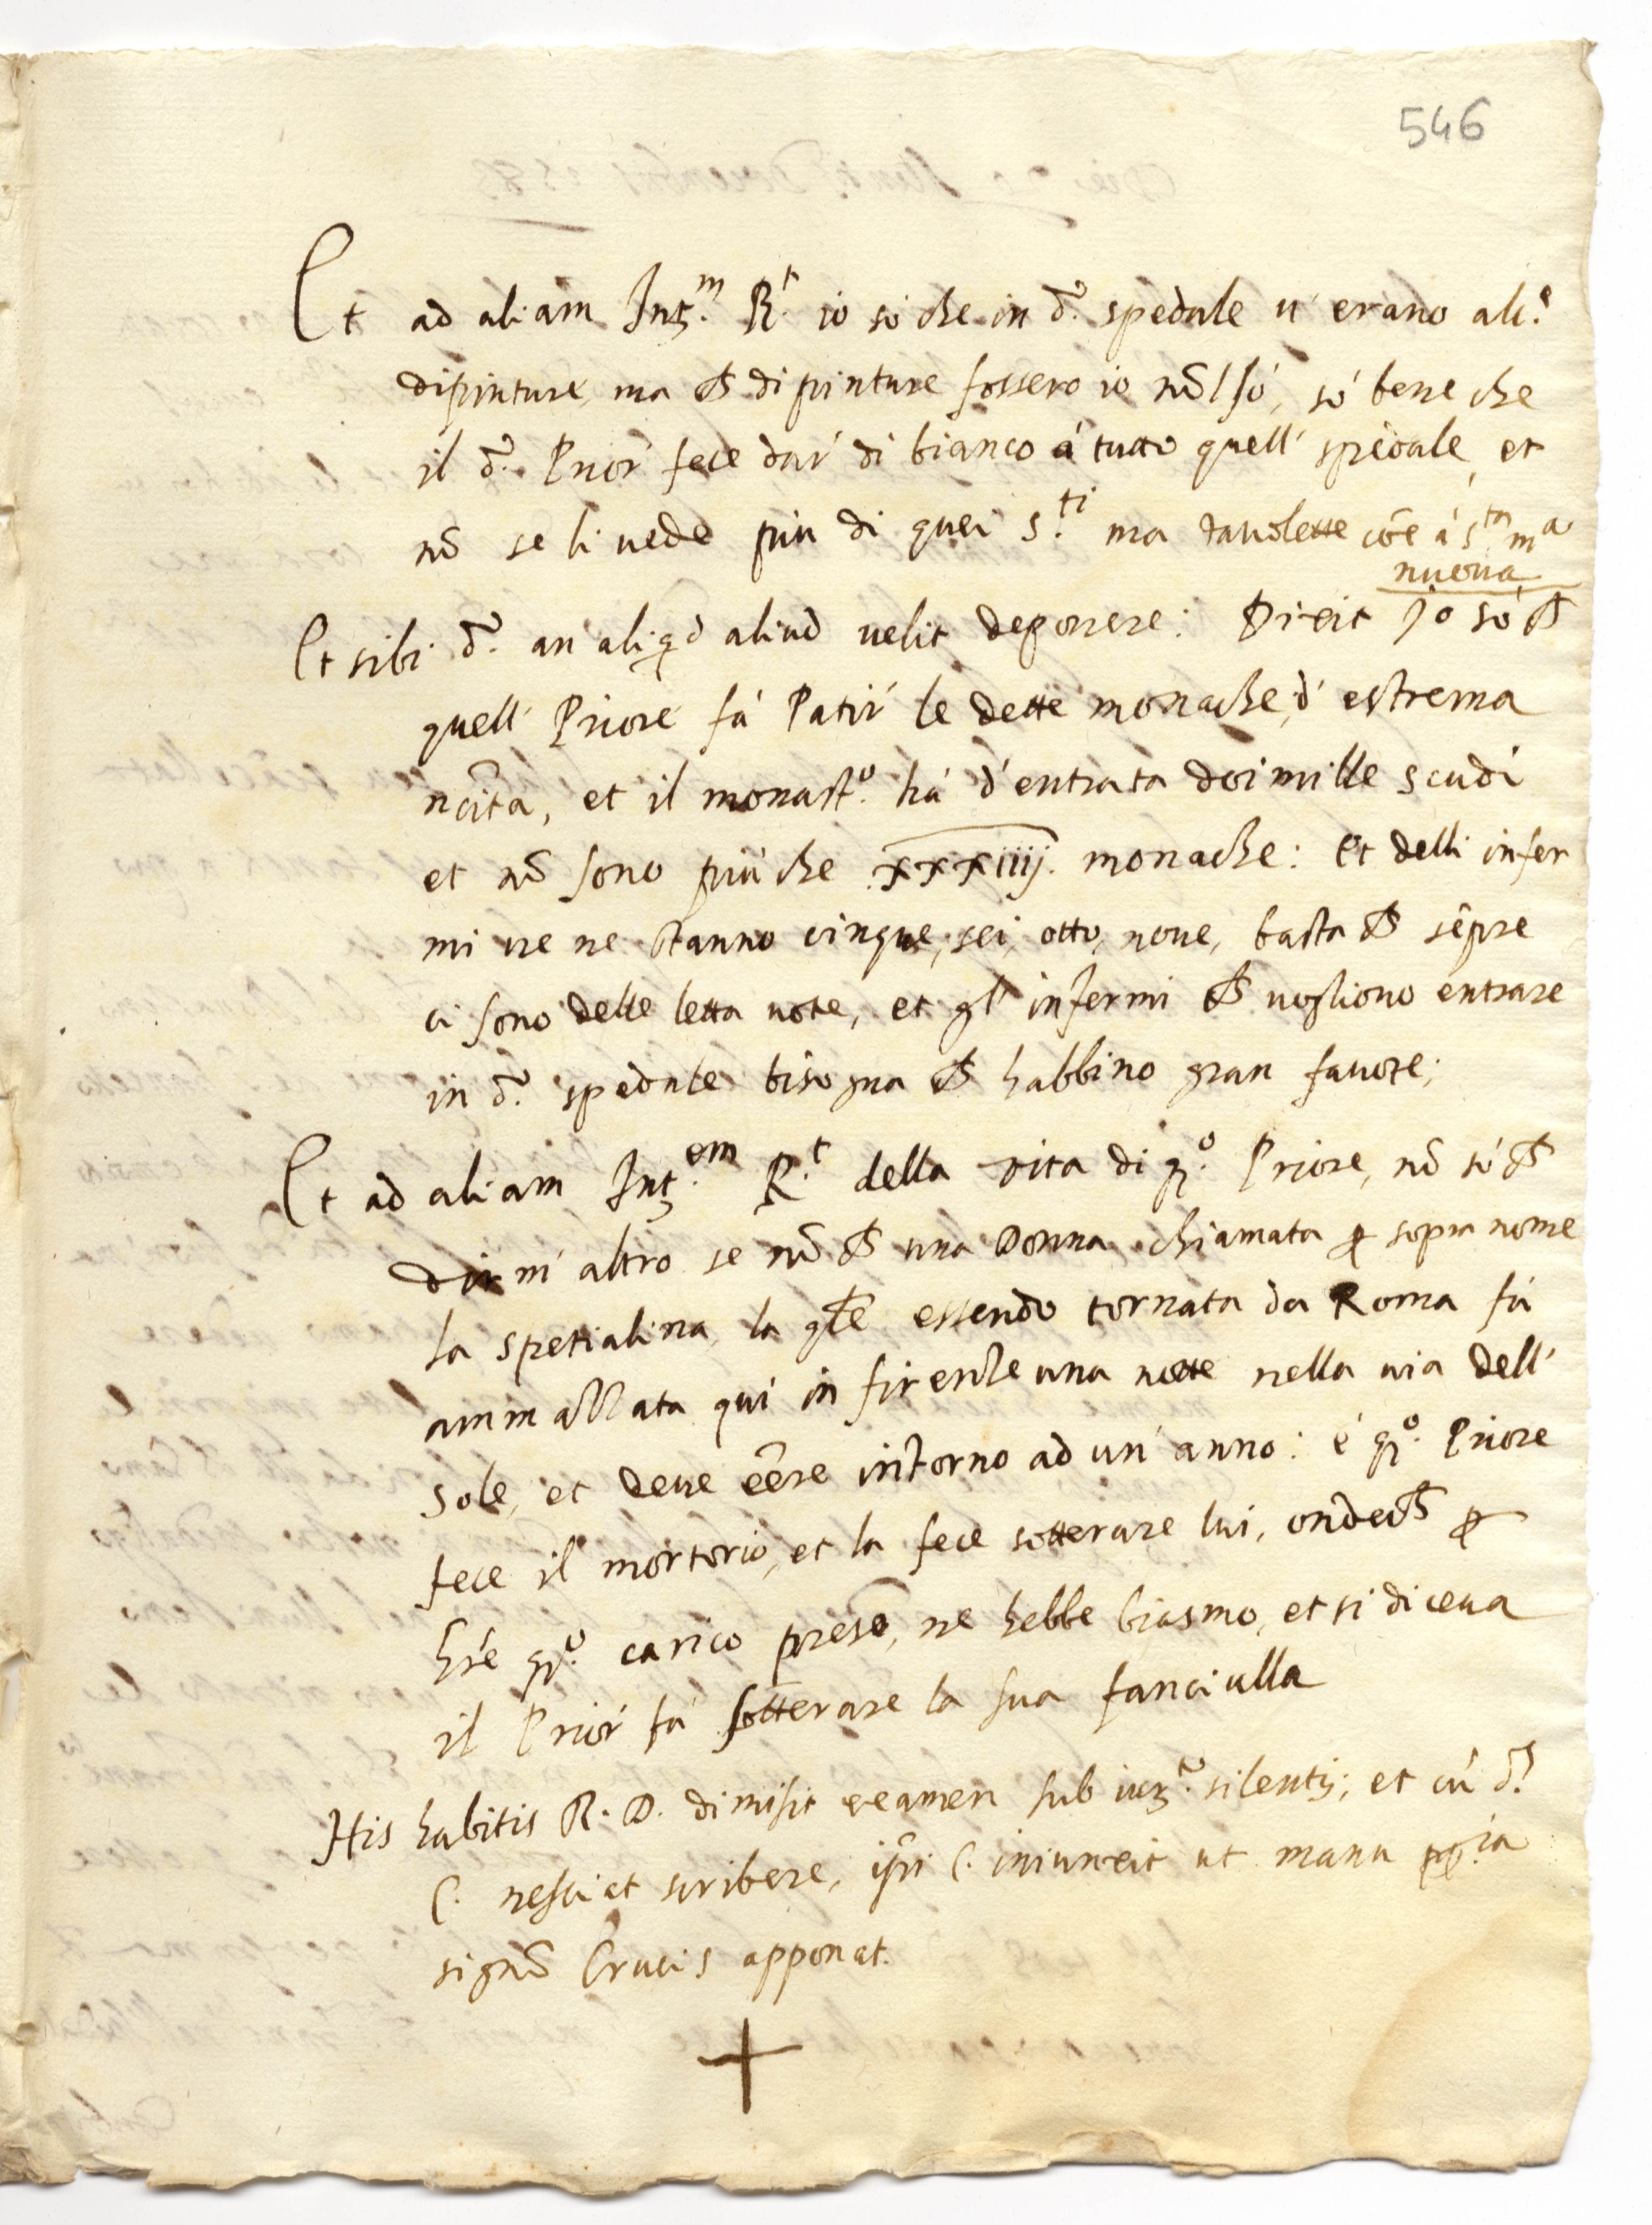 546
Et ad aliam Intz.m R.t io so che in d.o spedale u' erano alc.e
dipinture, ma ch dipinture fossero io nõ l so, só bene che
il d.o Prior fece dar' di bianco á tutto quell' spedale, et
nõ se li uede piu di quei S.ti ma tauolette cõe á S.ta m.a
nuoua
Et sibi d.o an aliqd aliud uelit deponere: Dixit Jo só ch
quell' Priore fá Patir' le dette monache, d' estrema
ncita, et il monast.o há d' entrata doi mille scudi
et nõ sono più che xxxiiij. monache: Et delli infer
mi ue ne stanno cinque, sei, otto, noue, basta ch sẽpre
ci sono delle letta uote, et gl' infermi ch uogliono entrare
in d.o spedale bisogna ch habbino gran fauore;
Et ad aliam Intz.em R.t della vita di q.o Priore, nõ só ch
dirui altro se nõ ch una Donna chiamata p sopra nome
la spetialina, la qle essendo tornata da Roma fú
ammazzata qui in firenze una notte nella uia dell'
sole, et deue eẽre intorno ad un' anno: é q.o Priore
fece il mortorio, et la fece sotterare lui, onde ch p
hré q.o carico preso, ne hebbe biasmo, et si diceua
il Prior' fá sotterare la sua fanciulla
His habitis R. D. dimisit examen sub iur.to silentij; et cú d.s
C. nesciat scribere, ipi C. iniunxit ut manu pp.ia
signũ Crucis apponat.
+